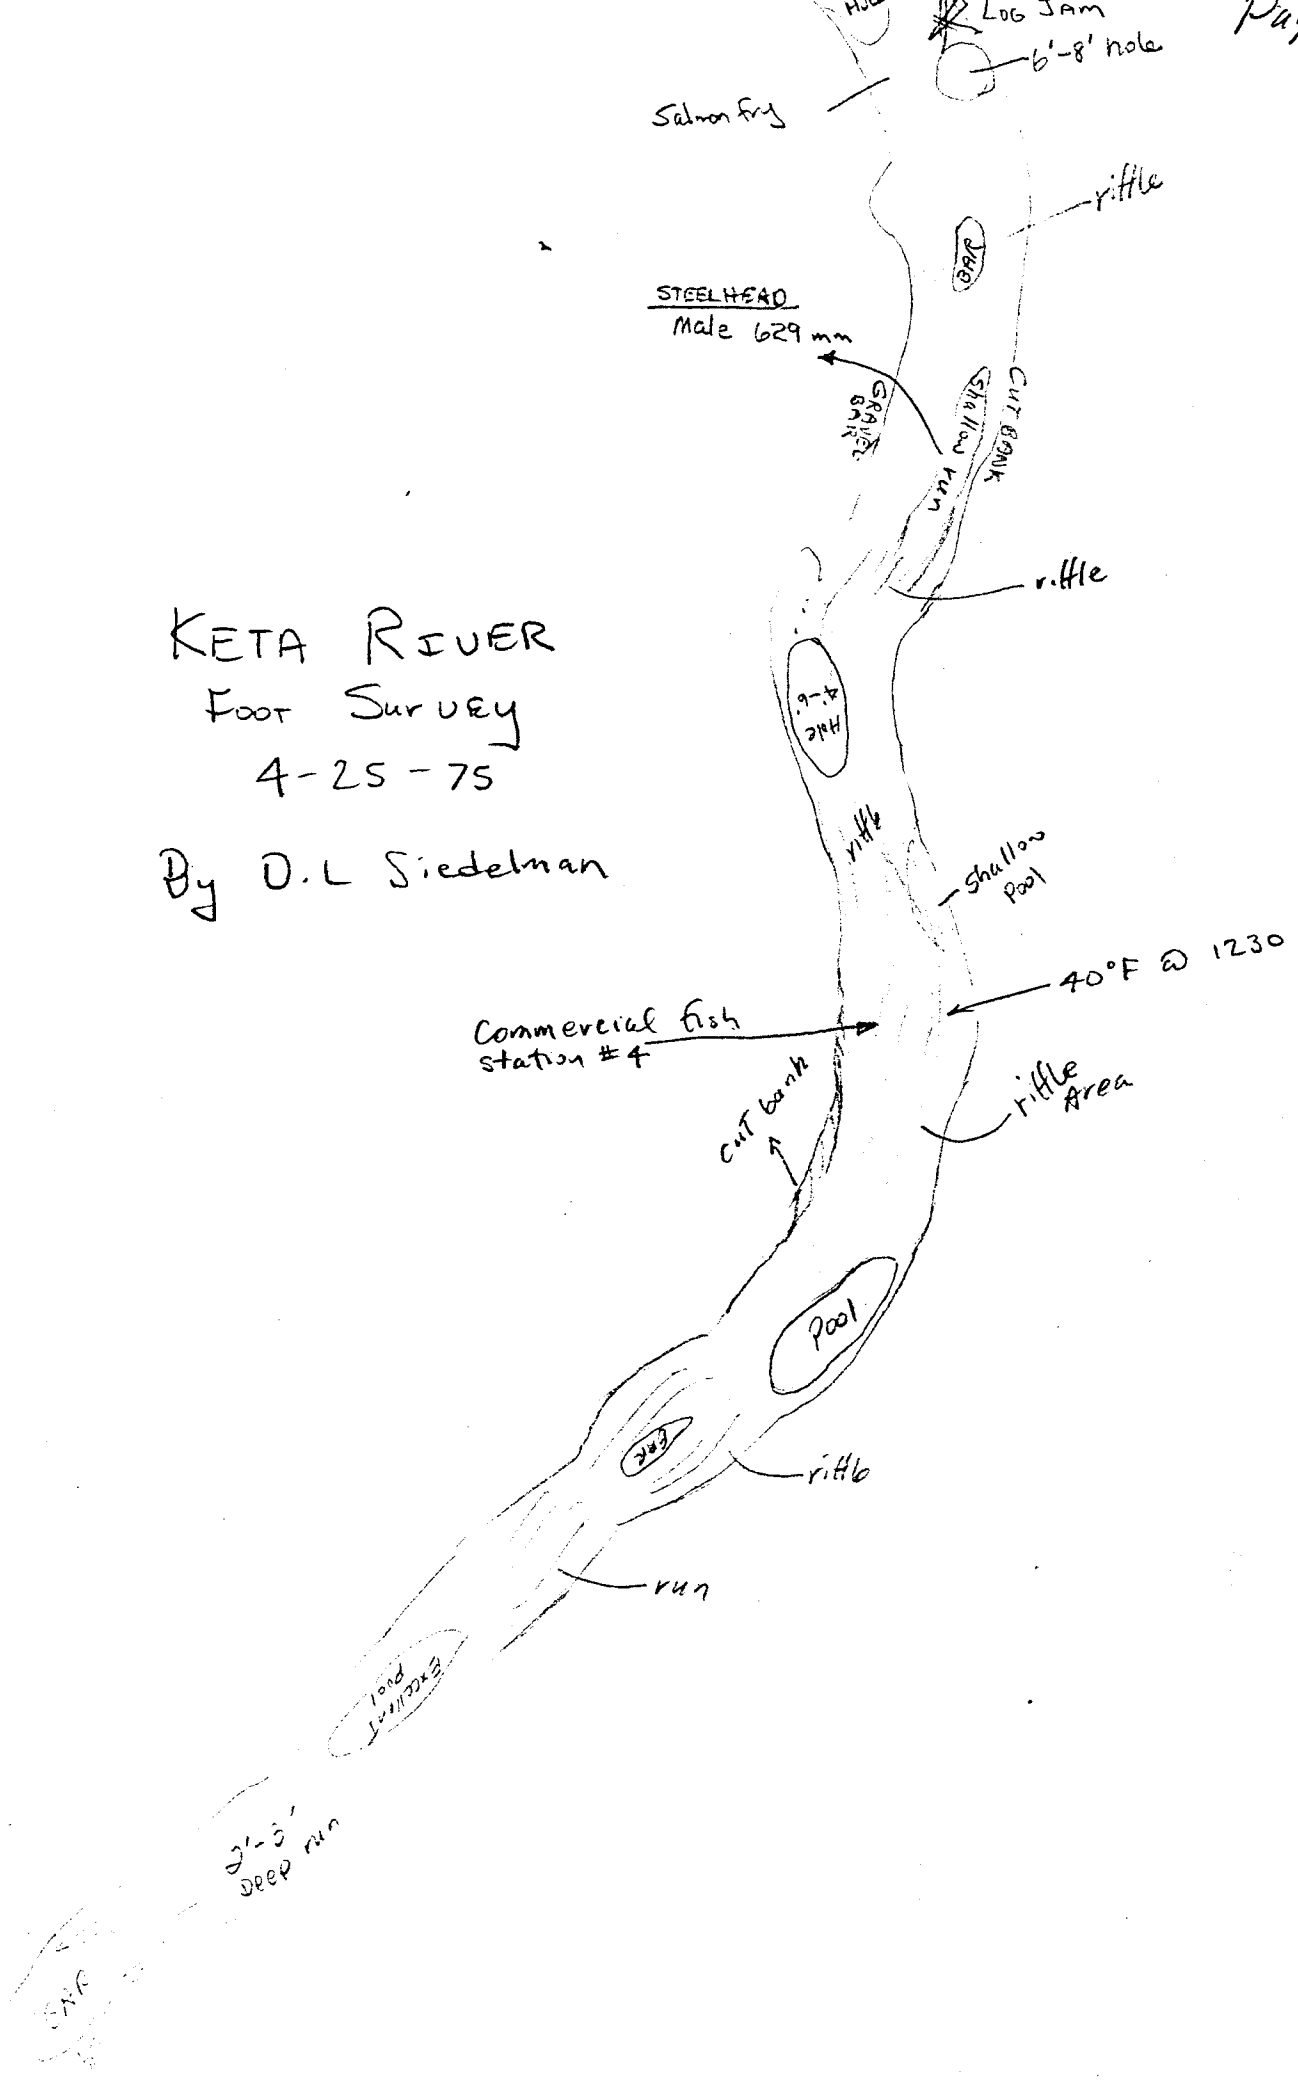 LOG JAM
6'-8' hole
Salmon fry
riffle
BAR
STEELHEAD
Male 629 mm
GRAVEL
BAR
CUT BANK
Shallow run
riffle
KETA RIVER
FOOT SURVEY
4-25-75
By D.L Siedelman
Hole
4'-6'
riffle
shallow
pool
40°F @ 1230
Commercial fish
station #4
cut bank
riffle
Area
Pool
BAR
riffle
run
Excellent
pool
Deep run
BAR